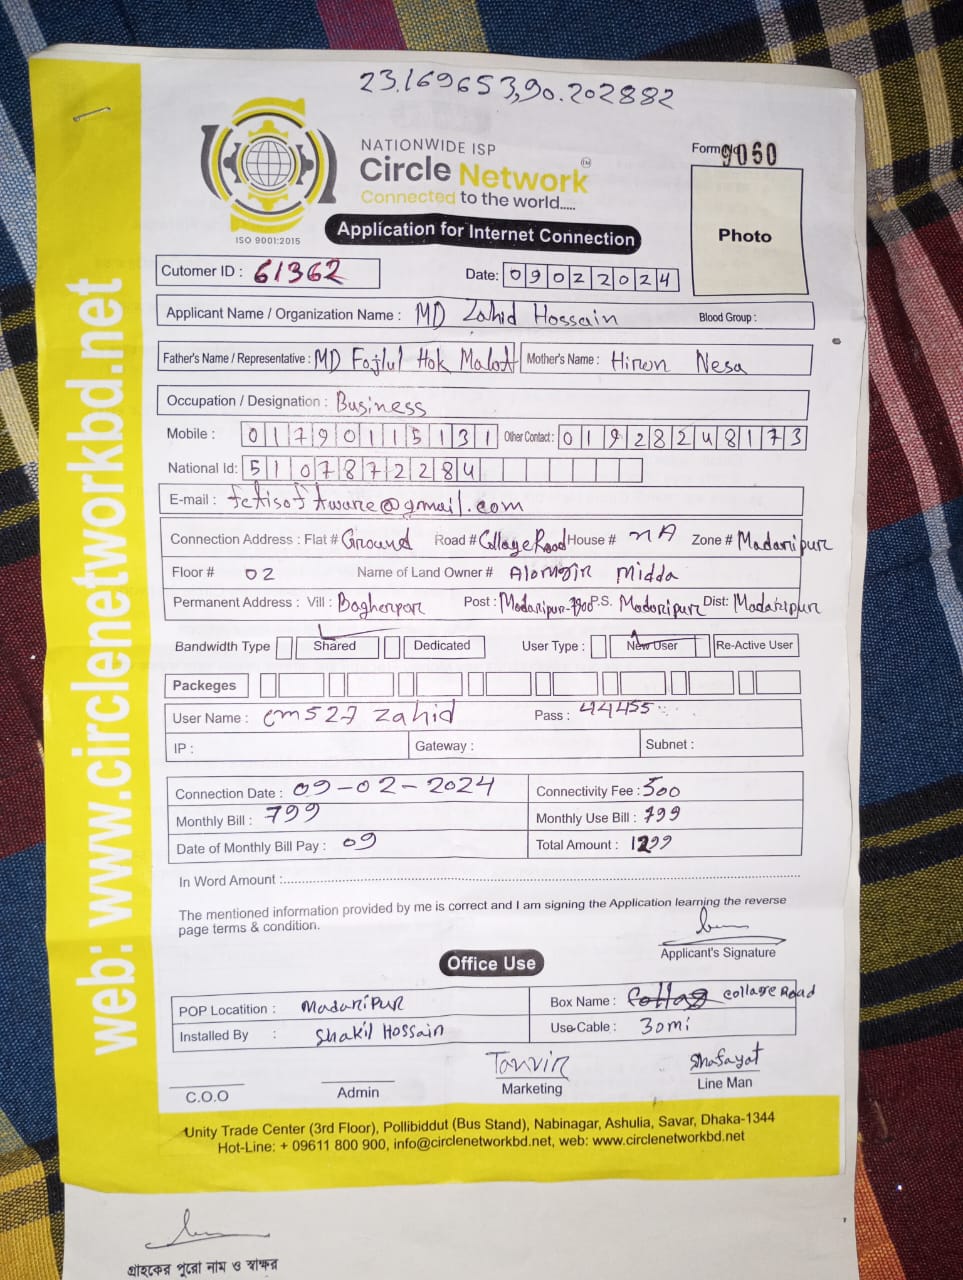 23.169653,90.202882
NATIONWIDE ISP
Circle Network
TM
Connected to the world.....
ISO 9001:2015
Form No 9060
Photo
Application for Internet Connection
Cutomer ID : 61362 Date: 09022024
Applicant Name / Organization Name : MD Zahid Hossain Blood Group :
Father's Name / Representative : MD Fojlul Hok Malot Mother's Name : Hiron Nesa
Occupation / Designation : Business
Mobile : 01790115131 Other Contact : 01928248173
National Id: 5107872284
E-mail : fctisoftware@gmail.com
Connection Address : Flat # Ground Road # Collage Road House # NA Zone # Madaripur
Floor # 02 Name of Land Owner # Alomgir Midda
Permanent Address : Vill : Bagherpar Post : Madaripur-7900 P.S. Madaripur Dist: Madaripur
Bandwidth Type Shared Dedicated User Type : New User Re-Active User
Packeges
User Name : cm527 zahid Pass : 44455
IP : Gateway : Subnet :
Connection Date : 09-02-2024 Connectivity Fee : 500
Monthly Bill : 799 Monthly Use Bill : 799
Date of Monthly Bill Pay : 09 Total Amount : 1299
In Word Amount :
The mentioned information provided by me is correct and I am signing the Application learning the reverse
page terms & condition.
Applicant's Signature
Office Use
POP Locatition : Madaripur Box Name : collage Road
Installed By : Shakil Hossain Use Cable : 30mi
Tanvir Shafayat
C.O.O Admin Marketing Line Man
Unity Trade Center (3rd Floor), Pollibiddut (Bus Stand), Nabinagar, Ashulia, Savar, Dhaka-1344
Hot-Line: + 09611 800 900, info@circlenetworkbd.net, web: www.circlenetworkbd.net
web: www.circlenetworkbd.net
গ্রাহকের পুরো নাম ও স্বাক্ষর